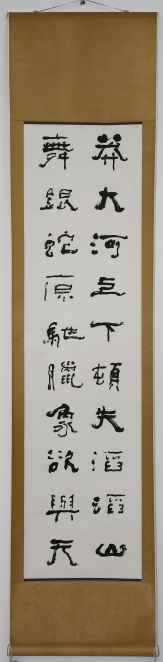 莽大河上下頓失滔滔山
舞銀蛇原馳臘象欲與天